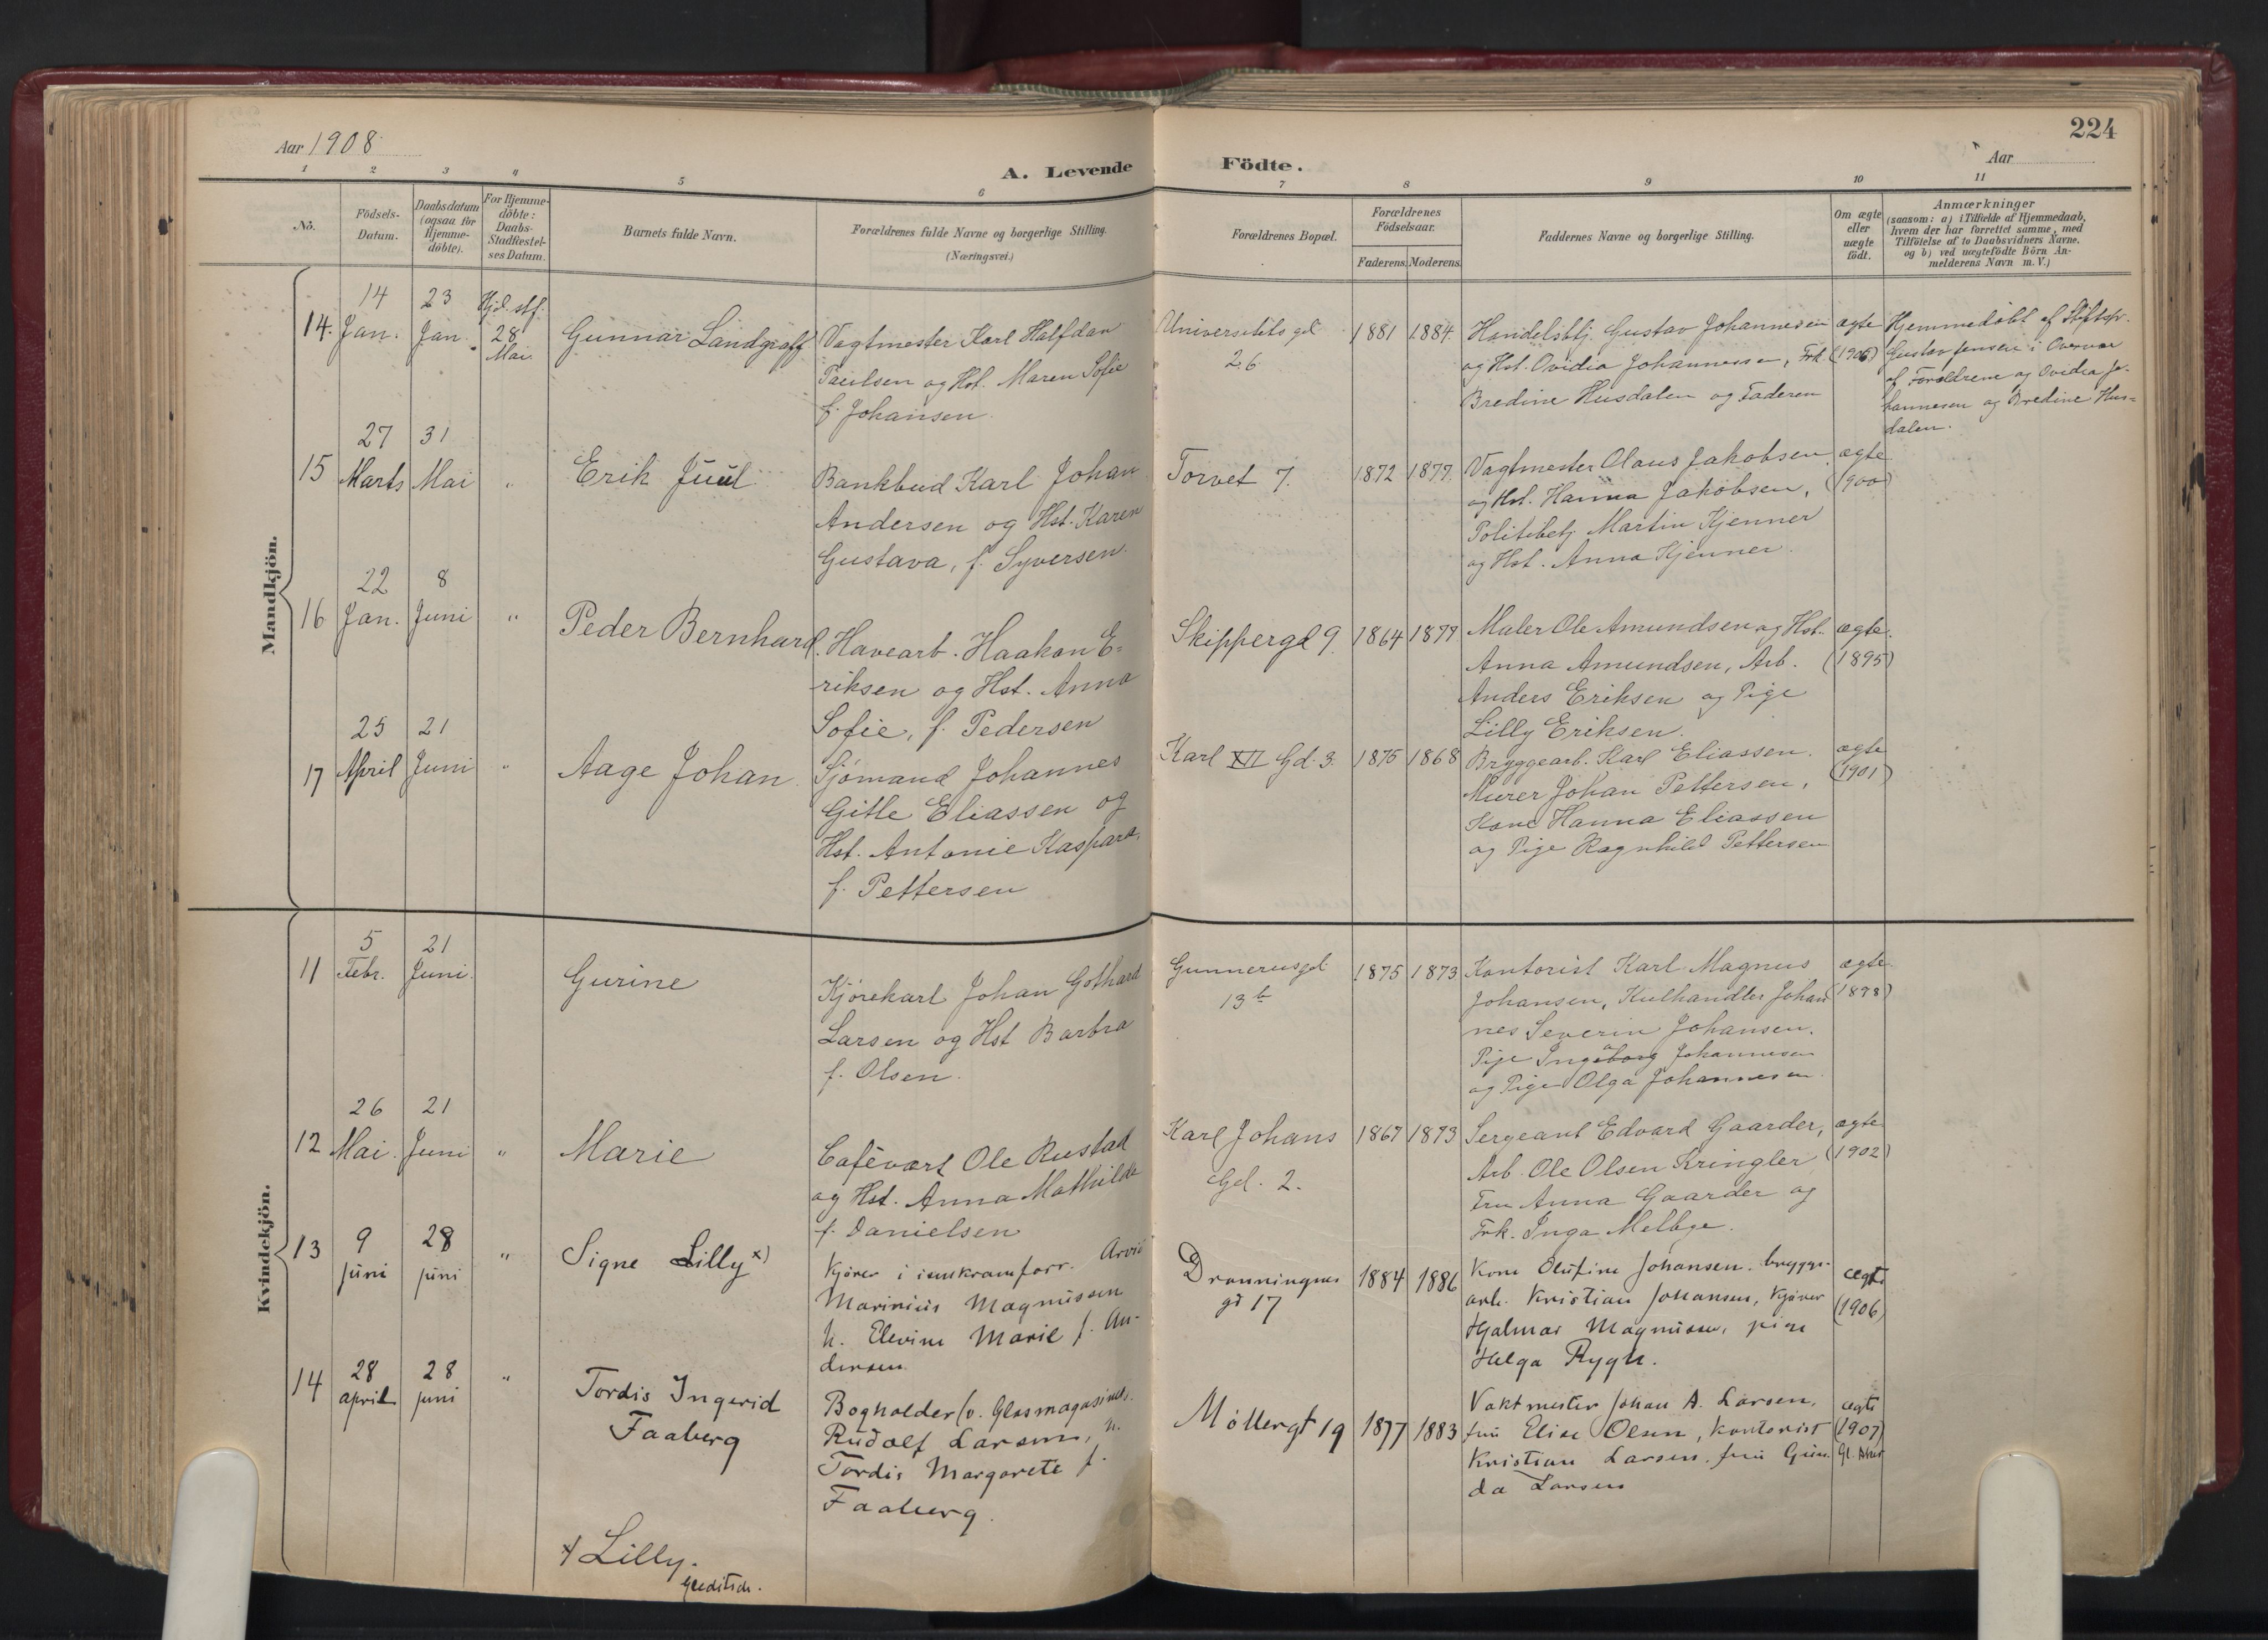 224
Aar 1908
Aar
A. Levende Födte.
1 2 3 4 5 6 7 8 9 10 11
No.
Födsels-Datum.
Daabsdatum (ogsaa for Hjemme-döbte).
For Hjemme-döbte: Daabs-Stadfæstel-ses Datum.
Barnets fulde Navn.
Forældrenes fulde Navne og borgerlige Stilling.
(Næringsvei.)
Forældrenes Bopæl.
Forældrenes Födselsaar.
Faderens. Moderens.
Faddernes Navne og borgerlige Stilling.
Om ægte eller uægte födt.
Anmærkninger
(saasom: a) i Tilfælde af Hjemmedaab,
hvem der har forrettet samme, med
Tilföielse af to Daabsvidners Navne.
og b) ved uægtefödte Börn An-
melderens Navn m. V.)
Mandkjön.
14. 14 Jan. 23 Jan. Hjd. stf. 28 Mai
Gunnar Landgraff
Vagtmester Karl Halfdan
Paulsen og Hst. Maren Sofie
f. Johansen
Universitets gd
26
1881 1884
Handelsbtj. Gustav Johannesen
og Hst. Ovidia Johannessen, Frk.
Bredine Husdalen og Faderen
ægte
(1906)
Hjemmedøbt af Stiftspr.
Gustav Jensen i Overvær
af Forældrene og Ovidia Jo-
hannesen og Bredine Hus-
dalen.
15 27 Marts 31 Mai "
Erik Juul
Bankbud Karl Johan
Andersen og Hst. Karen
Gustava, f. Syversen
Torvet 7.
1872 1877
Vagtmester Olaus Jakobsen
og Hst. Hanna Jakobsen,
Politibetj. Martin Kjenner
og Hst. Anna Kjenner
ægte
(1900)
16 22 Jan. 8 Juni "
Peder Bernhard.
Havearb. Haakon E-
riksen og Hst. Anna
Sofie, f. Pedersen
Skippergd 9.
1864 1877
Maler Ole Amundsen og Hst.
Anna Amundsen, Arb.
Anders Eriksen og Pige
Lilly Eriksen.
ægte.
(1895)
17 25 April 21 Juni "
Aage Johan
Sjømand Johannes
Gitle Eliassen og
Hst. Antonie Kaspara,
f. Pettersen
Karl XII Gd. 3.
1875 1868
Bryggearb. Karl Eliassen.
Murer Johan Pettersen,
Kone Hanna Eliassen
og Pige Ragnhild Pettersen
ægte
(1901)
Kvindekjön.
11 5 Febr. 21 Juni.
Gurine
Kjørekarl Johan Gothard
Larsen og Hst Barbra
f. Olsen.
Gunnerusgd.
13 b
1875 1873
Kontorist Karl Magnus
Johansen, Kulhandler Johan
nes Severin Johansen.
Pige Johannesen
og Pige Olga Johannesen
ægte
(1898)
12 26 Mai. 21 Juni "
Marie
Cafévært Ole Rustad
og Hst. Anna Mathilde
f. Danielsen
Karl Johans
Gd. 2.
1867 1873
Sergeant Edvard Gaarder,
Arb. Ole Olsen Kringler
Fru Anna Gaarder og
Frk. Inga Melbye.
ægte
(1902)
13 9 juni 28 juni "
Signe Lilly x)
Kjører i isenkramforr. Arvid
Marinius Magnussen
h. Elevine Marie f. An-
dersen
Dronningens
gd 17
1884 1886
Kone Olufine Johansen. brygge-
arb. Kristian Johansen, Kjører
Hjalmar Magnussen, pige
Helga Rygh.
ægte
(1906)
14 28 april 28 juni "
Tordis Ingerid
Faaberg
Bogholder (v. Glasmagasinet.
Rudolf Larsen, h.
Tordis Margarete f.
Faaberg.
Møllergt 19
1877 1883
Vaktmester Johan A. Larsen,
fru Elise Olsen, kontorist
Kristian Larsen, fru Gun-
da Larsen
ægte
(1907)
Gl. Aker
x) Lilly.